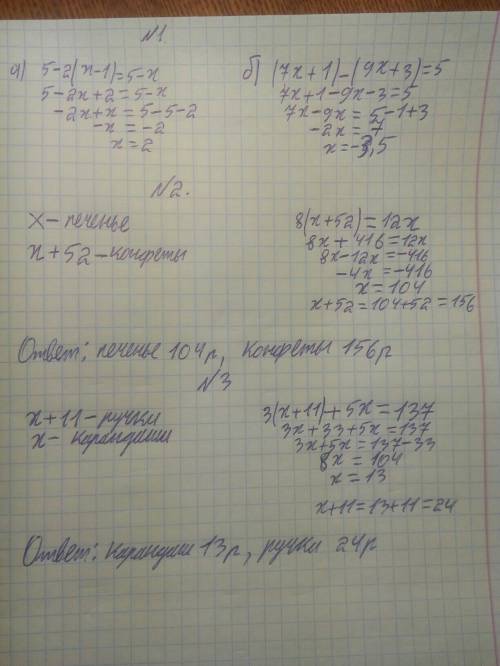 N1
а) 5-2(x-1)=5-x
5-2x+2=5-x
-2x+x=5-5-2
-x=-2
x=2
б) (7x+1)-(9x+3)=5
7x+1-9x-3=5
7x-9x=5-1+3
-2x=7
x=-3,5
N2.
x-печенье
x+52-конфеты
8(x+52)=12x
8x+416=12x
8x-12x=-416
-4x=-416
x=104
x+52=104+52=156
Ответ: печенье 104р, конфеты 156р
N3
x+11-ручки
x-карандаши
3(x+11)+5x=137
3x+33+5x=137
3x+5x=137-33
8x=104
x=13
x+11=13+11=24
Ответ: карандаш 13р, ручки 24р